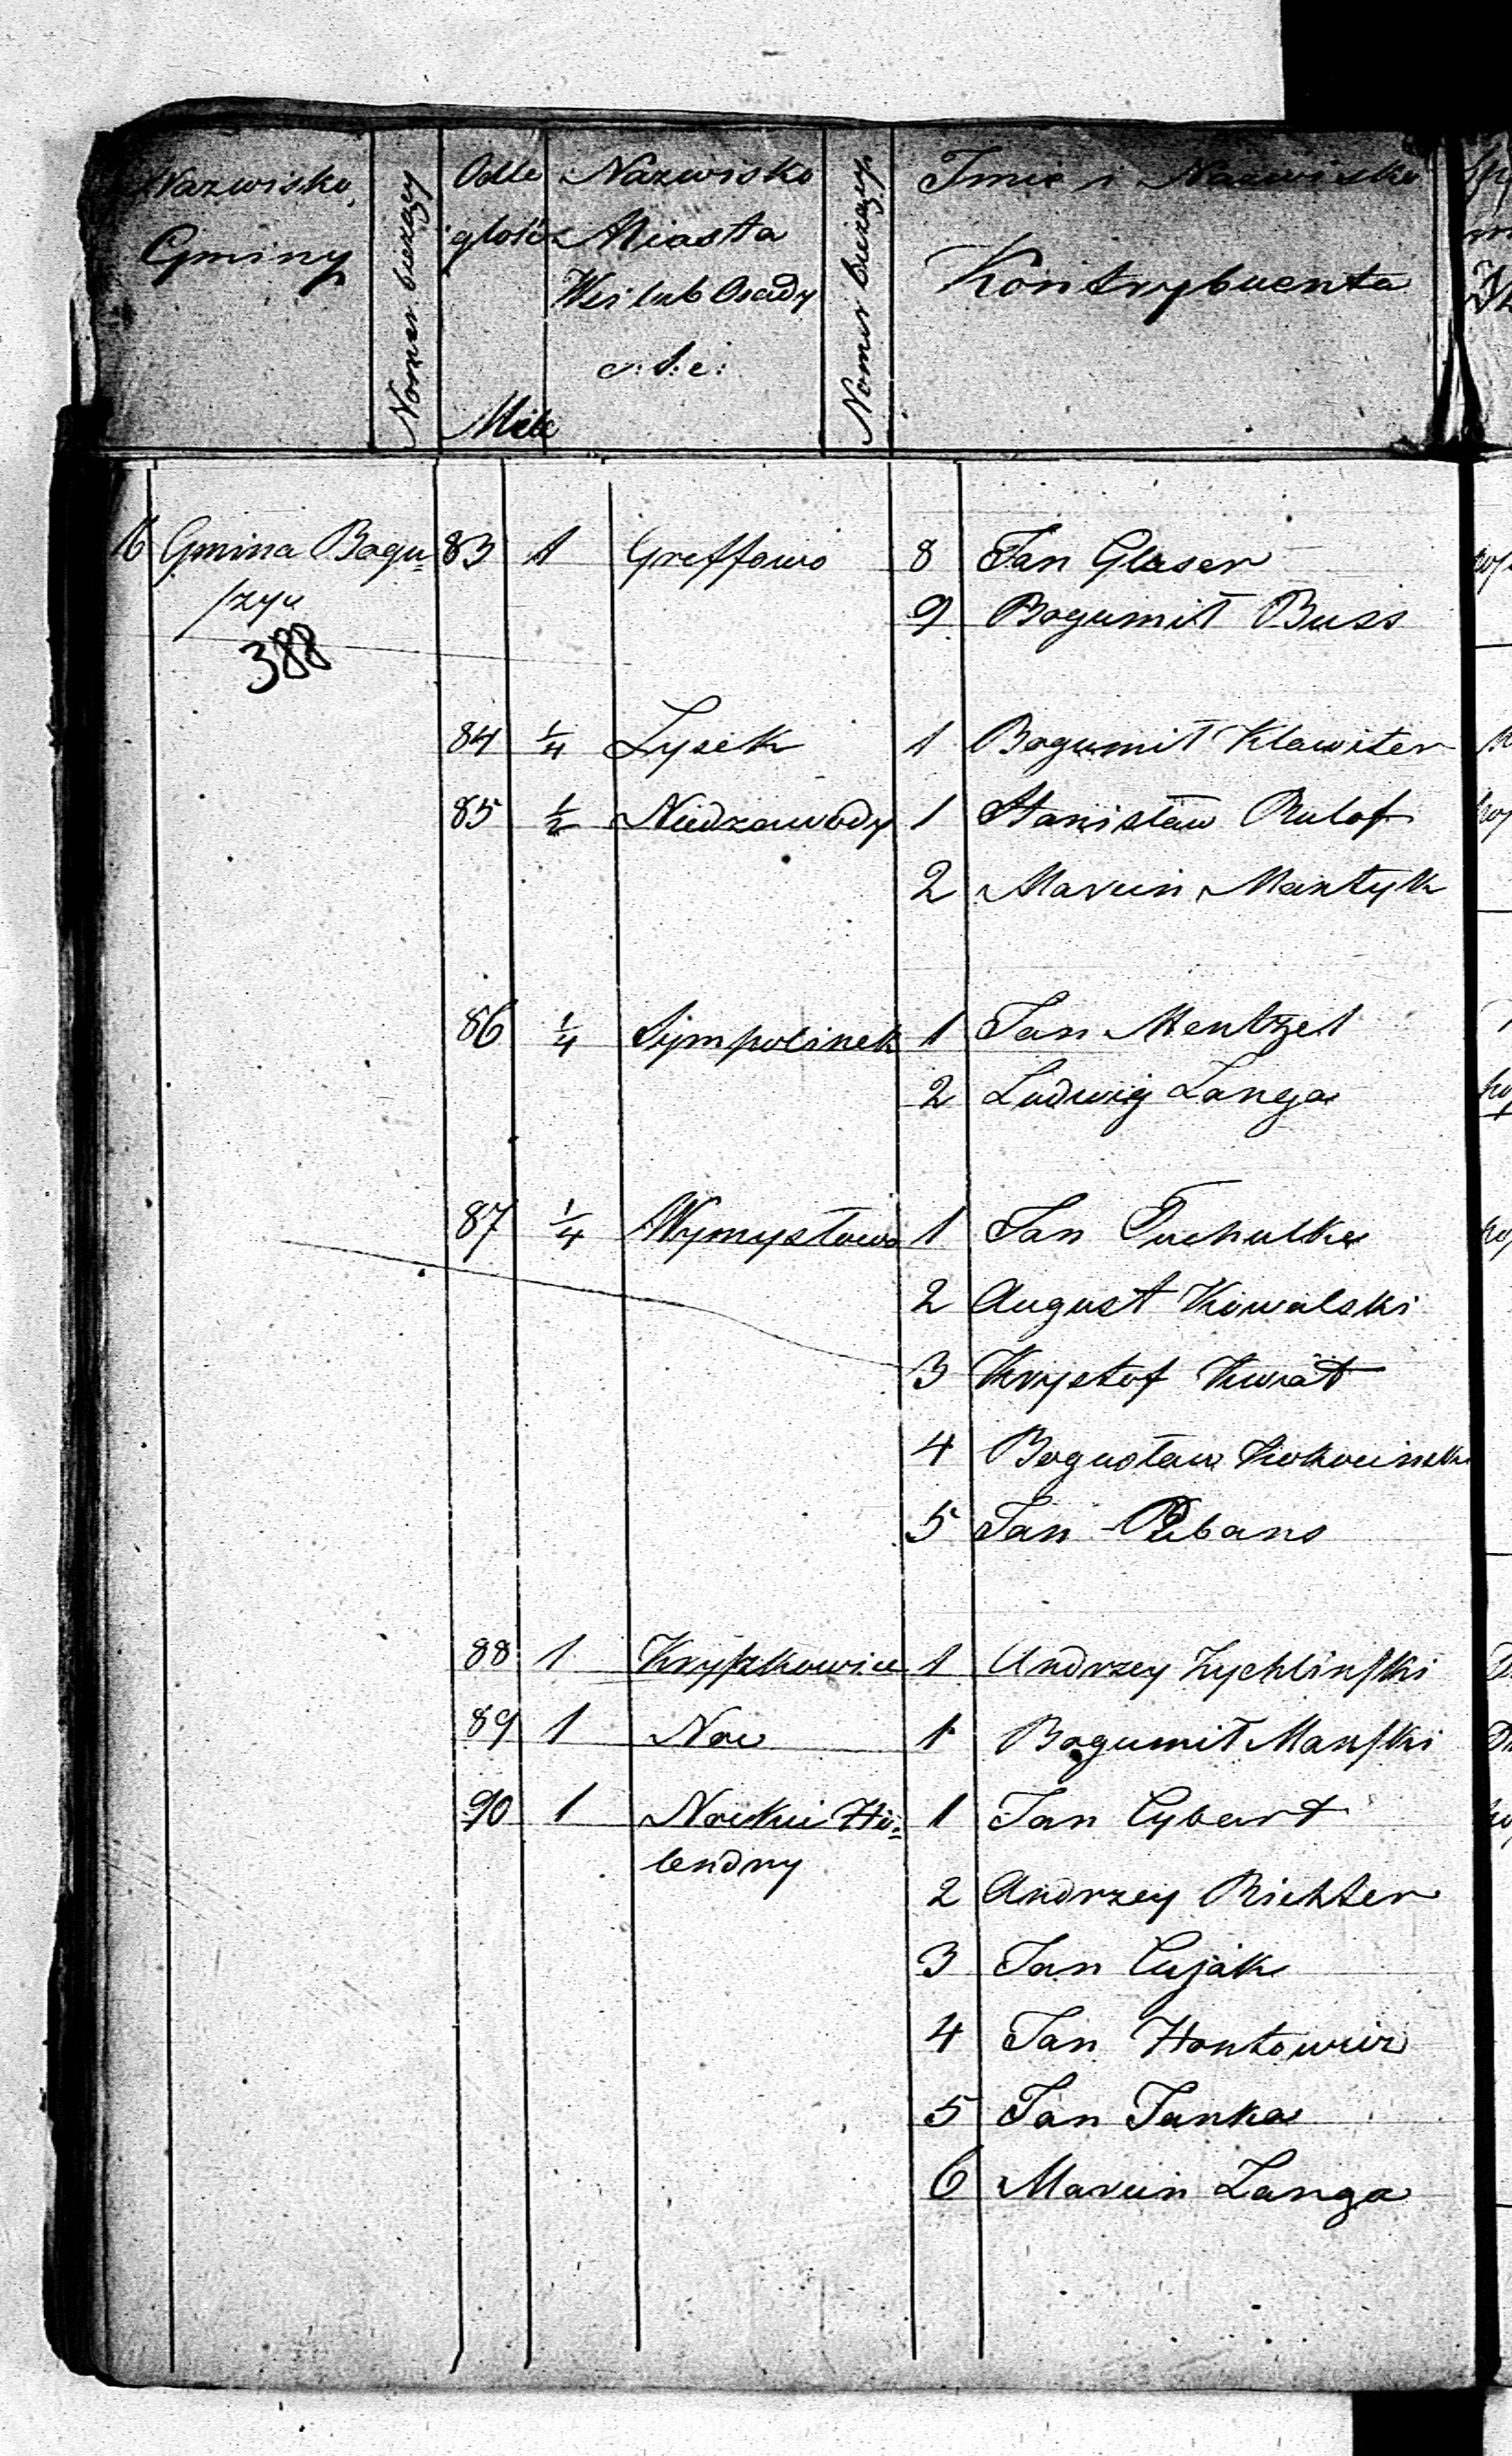 Nazwisko Gminy
Nomer bieżący
Odległość Mile
Nazwisko Miasta Wsi lub Osady
Nomer bieżący
Imie i Nazwisko Kontrybuenta
16 Gmina Bogu= 83 1 Greffowo 8 Jan Glaser
szyc 9 Bogumił Buss
388
84 1/4 Lysek 1 Bogumił Klawiter
85 1/2 Niedzawody 1 Stanisław Rulof
2 Marcin Mantyk
86 1/4 Sympolinek 1 Jan Mentzel
2 Ludwig Langa
87 1/4 Wymysłowo 1 Jan Tuchulka
2 August Kowalski
3 Krystof Kwiat
4 Bogusław
5 Jan
88 1 Kryszkowice 1 Andrzey Zychlinski
89 1 Noc 1 Bogumił Manski
90 1 Nockie Ho= 1 Jan Cybart
lendry
2 Andrzey Richter
3 Jan Cujak
4 Jan Hontowicz
5 Jan Janka
6 Marcin Langa